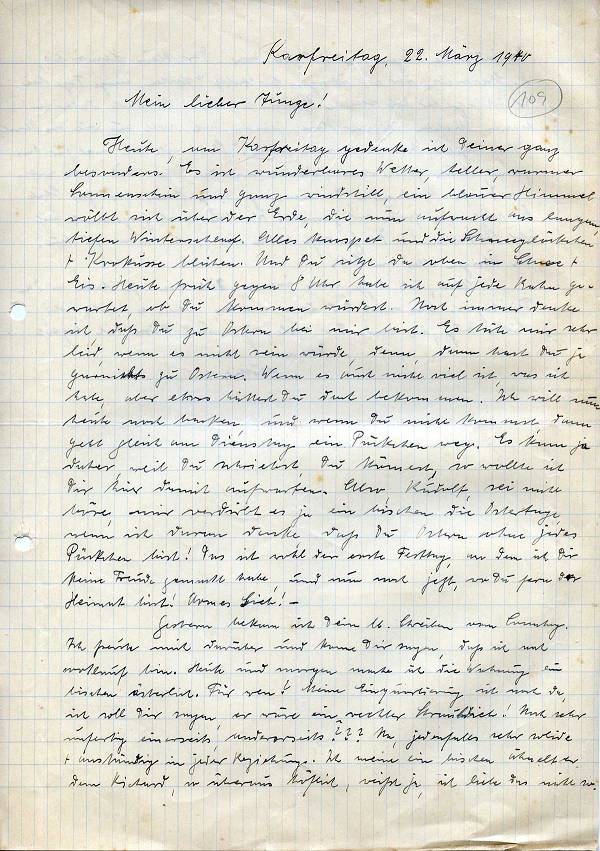 Karfreitag, 22. März 1940
109
Mein lieber Junge!
Heute, am Karfreitag gedenke ich Deiner ganz
besonders. Es ist wunderbares Wetter, heller, warmer
Sonnenschein und ganz windstill, ein blauer Himmel
wölbt sich über der Erde, die nun aufwacht aus langem,
tiefen Winterschlaf. Alles knospet und die Schneeglöckchen
+ Krokusse blühen. Und Du sitzt da oben in +
Eis. Heute früh gegen 8 Uhr habe ich auf jede Bahn ge-
wartet, ob Du kommen würdest. Noch immer denke
ich, daß Du zu Ostern bei mir bist. Es täte mir sehr
leid, wenn es nicht sein würde, denn, dann hast Du ja
garnichts zu Ostern. Wenn es auch nicht viel ist, was ich
habe, aber etwas hättest Du doch bekommen. Ich will nun
heute noch backen, und wenn Du nicht kommst, dann
geht gleich am Dienstag ein Päckchen weg. Es kam ja
daher, weil Du schriebst, Du kämest, so wollte ich
Dir hier damit aufwarten. Also, Rudolf, sei nicht
böse, mir verdirbt es ja ein bischen die Ostertage,
wenn ich daran denke, daß Du Ostern ohne jedes
Päckchen bist! Das ist wohl der erste Festtag, an dem ich Dir
keine Freude gemacht habe, und nun noch jetzt, wo Du fern der
Heimat bist! Armes Lieb! –
Gestern bekam ich Dein lb. Schreiben vom Sonntag.
Ich freute mich darüber und kann Dir sagen, daß ich noch
wohlauf bin. Heute und morgen mache ich die Wohnung ein
bischen österlich. Für wen? Meine Einquartierung ist noch da,
ich soll Dir sagen, er wäre ein rechter! Noch sehr
einerseits, andererseits??? Na, jedenfalls sehr solide
+ anständig in jeder Beziehung. Ich meine ein bischen ähnelt er
dem Richard, so überaus höflich, weißt ja, ich liebe das nicht so.